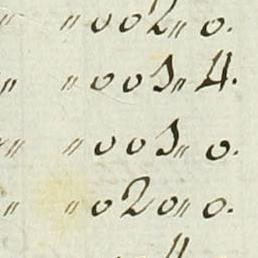 " " 002" 0.
" " 003" 4.
" " 003" 0.
" " 020" 0.